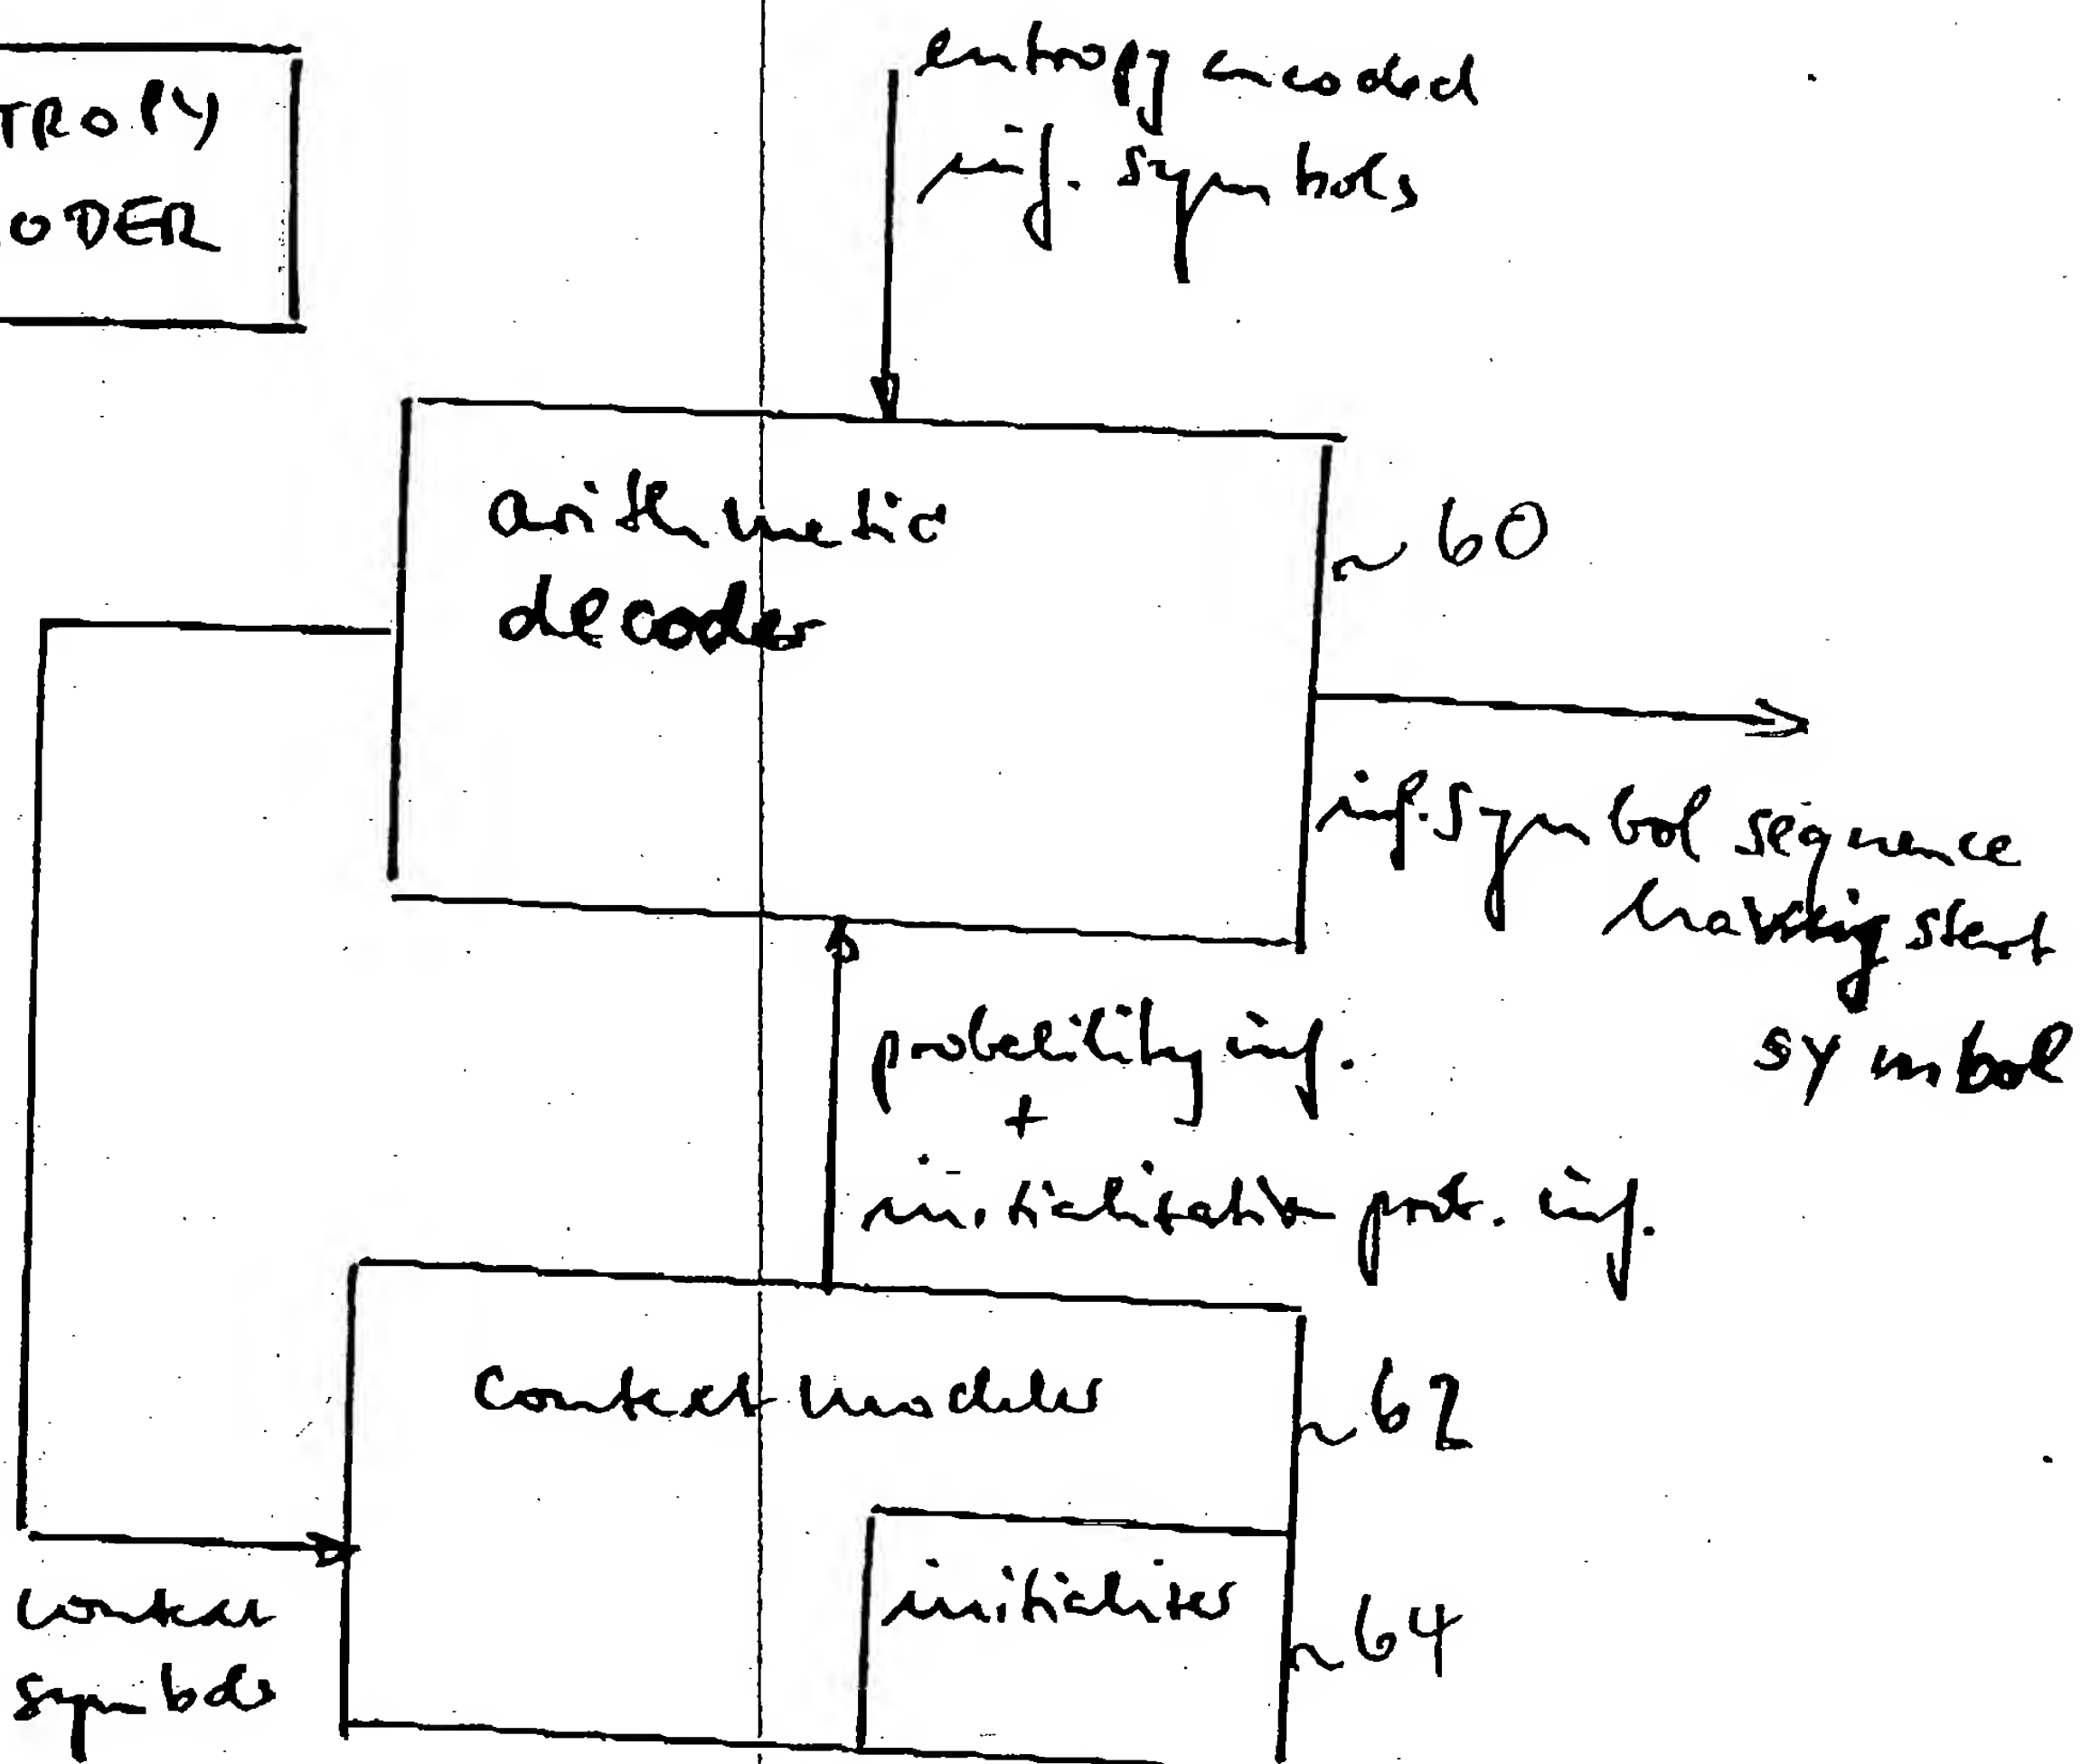 TROPY
ODER
entropy encoded
inf. symbols
arithmetic
decoder
60
inf. symbol sequence
having start
symbol
probability inf.
+
initialization prob. inf.
context modeler
62
initializer
64
context
symbols